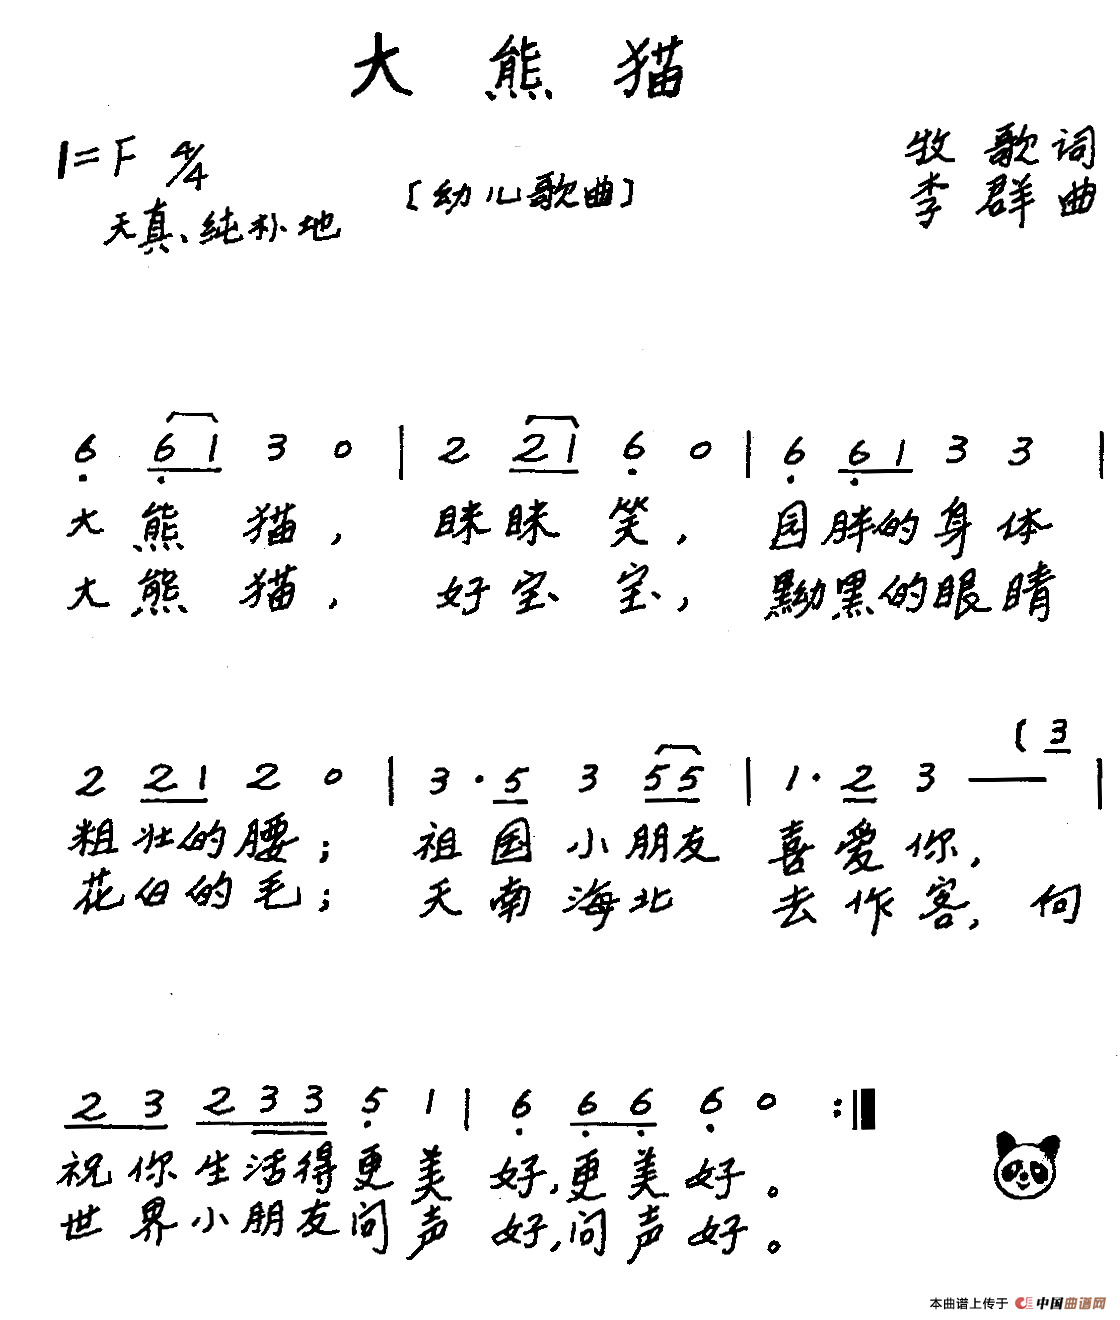 大熊猫
1=F 4/4
[幼儿歌曲]
牧歌词
李群曲
天真、纯朴地
6 6 1 3 0 | 2 2 1 6 0 | 6 6 1 3 3 |
大熊猫，眯眯笑，园胖的身体
大熊猫，好宝宝，黝黑的眼睛
(3
2 2 1 2 0 | 3 · 5 3 5 5 | 1 · 2 3 — |
粗壮的腰；祖国小朋友喜爱你，
花白的毛；天南海北去作客，向
2 3 2 3 3 5 1 | 6 6 6 6 0 :|
祝你生活得更美好，更美好。
世界小朋友问声好，问声好。
本曲谱上传于 中国曲谱网